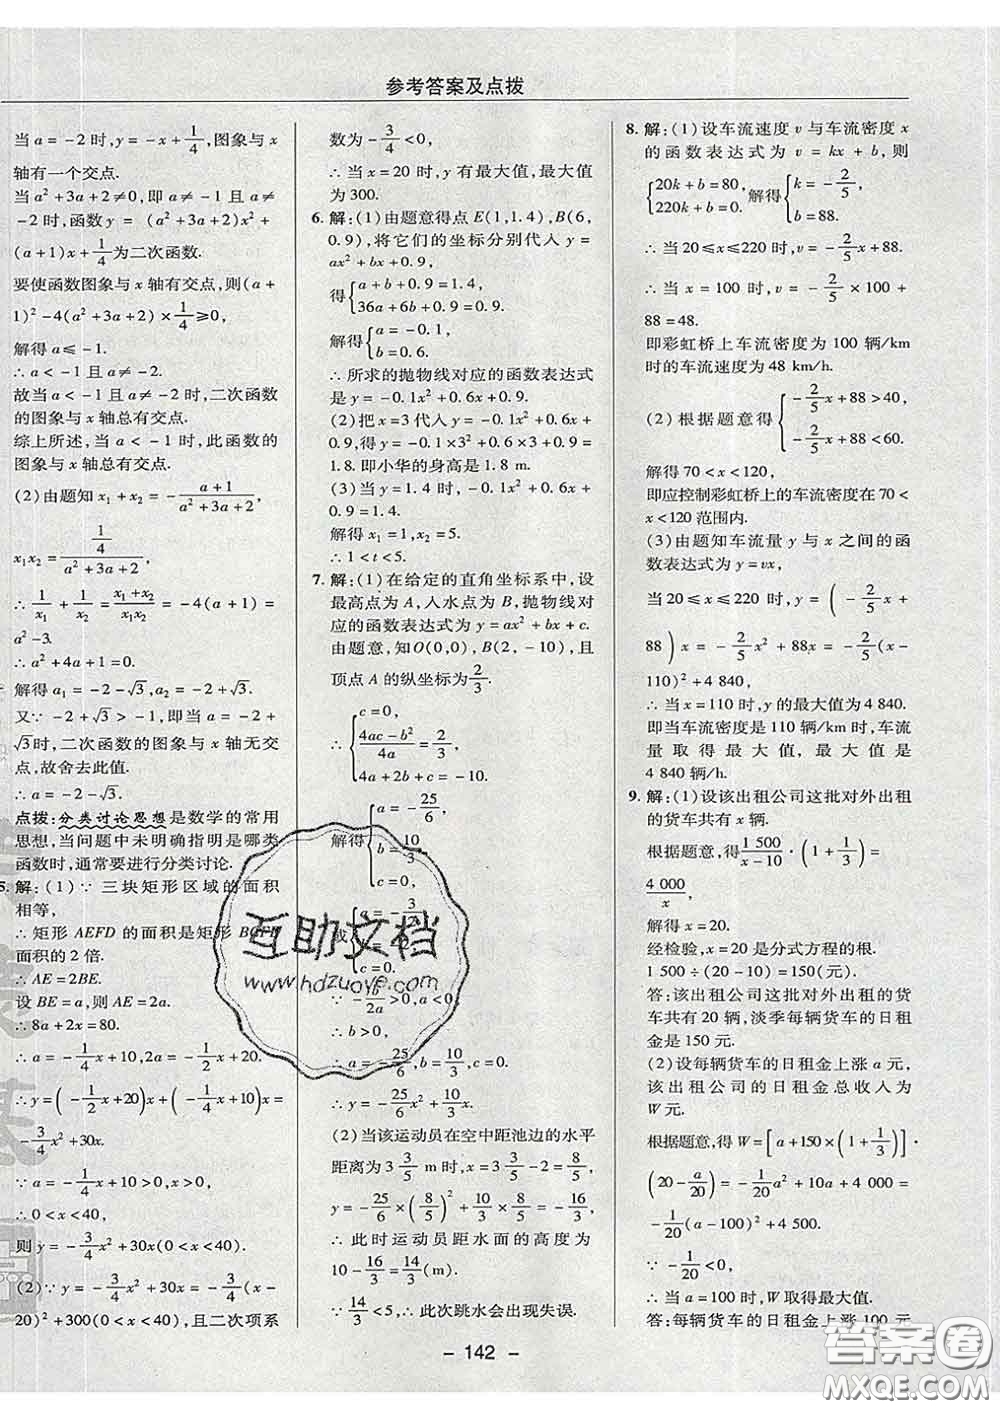 参考答案及点拨
当 a = -2 时, y = -x + 1/4, 图象与 x
轴有一个交点.
当 a² + 3a + 2 ≠ 0, 即 a ≠ -1 且 a ≠
-2 时, 函数 y = (a² + 3a + 2)x² +
(a + 1)x + 1/4 为二次函数.
要使函数图象与 x 轴有交点, 则 (a +
1)² - 4(a² + 3a + 2) × 1/4 ≥ 0,
解得 a ≤ -1.
∴ a < -1 且 a ≠ -2.
故当 a < -1 且 a ≠ -2 时, 二次函数
的图象与 x 轴总有交点.
综上所述, 当 a < -1 时, 此函数的
图象与 x 轴总有交点.
(2) 由题知 x₁ + x₂ = -(a + 1)/(a² + 3a + 2),
x₁x₂ = (1/4)/(a² + 3a + 2),
∴ 1/x₁ + 1/x₂ = (x₁ + x₂)/(x₁x₂) = -4(a + 1) =
a² - 3.
∴ a² + 4a + 1 = 0.
解得 a₁ = -2 - √3, a₂ = -2 + √3.
又∵ -2 + √3 > -1, 即当 a = -2 +
√3 时, 二次函数的图象与 x 轴无交
点, 故舍去此值.
∴ a = -2 - √3.
点拨: 分类讨论思想是数学的常用
思想, 当问题中未明确指明是哪类
函数时, 通常要进行分类讨论.
5. 解: (1) ∵ 三块矩形区域的面积
相等,
∴ 矩形 AEFD 的面积是矩形 BCFE
面积的 2 倍.
∴ AE = 2BE.
设 BE = a, 则 AE = 2a.
∴ 8a + 2x = 80.
∴ a = -1/4 x + 10, 2a = -1/2 x + 20.
∴ y = (-1/2 x + 20)x + (-1/4 x + 10)x =
-3/4 x² + 30x.
∵ a = -1/4 x + 10 > 0,
∴ 0 < x < 40,
则 y = -3/4 x² + 30x (0 < x < 40).
(2) ∵ y = -3/4 x² + 30x = -3/4 (x -
20)² + 300 (0 < x < 40), 且二次项系
数为 -3/4 < 0,
∴ 当 x = 20 时, y 有最大值, 最大值
为 300.
6. 解: (1) 由题意得点 E(1, 1.4), B(6,
0.9), 将它们的坐标分别代入 y =
ax² + bx + 0.9,
得 { a + b + 0.9 = 1.4,
36a + 6b + 0.9 = 0.9.
解得 { a = -0.1,
b = 0.6.
∴ 所求的抛物线对应的函数表达式
是 y = -0.1x² + 0.6x + 0.9.
(2) 把 x = 3 代入 y = -0.1x² + 0.6x +
0.9, 得 y = -0.1×3² + 0.6×3 + 0.9 =
1.8. 即小华的身高是 1.8 m.
(3) 当 y = 1.4 时, -0.1x² + 0.6x +
0.9 = 1.4.
解得 x₁ = 1, x₂ = 5.
∴ 1 < t < 5.
7. 解: (1) 在给定的直角坐标系中, 设
最高点为 A, 入水点为 B, 抛物线对
应的函数表达式为 y = ax² + bx + c.
由题意, 知 O(0, 0), B(2, -10), 且
顶点 A 的纵坐标为 2/3.
∴ { c = 0,
(4ac - b²)/4a = 2/3,
4a + 2b + c = -10.
解得 { a = -25/6,
b = 10/3,
c = 0
或 { a = -3/2,
c = 0.
∵ -b/2a > 0, a < 0,
∴ b > 0.
∴ a = -25/6, b = 10/3, c = 0.
∴ y = -25/6 x² + 10/3 x.
(2) 当该运动员在空中距池边的水平
距离为 3 3/5 m 时, x = 3 3/5 - 2 = 8/5,
y = -25/6 × (8/5)² + 10/3 × 8/5 = -16/3,
∴ 此时运动员距水面的高度为
10 - 16/3 = 14/3 (m).
∵ 14/3 < 5, ∴ 此次跳水会出现失误.
8. 解: (1) 设车流速度 v 与车流密度 x
的函数表达式为 v = kx + b, 则
{ 20k + b = 80,
220k + b = 0. 解得 { k = -2/5,
b = 88.
∴ 当 20 ≤ x ≤ 220 时, v = -2/5 x + 88.
∴ 当 x = 100 时, v = -2/5 × 100 +
88 = 48.
即彩虹桥上车流密度为 100 辆/km
时的车流速度为 48 km/h.
(2) 根据题意得 { -2/5 x + 88 > 40,
-2/5 x + 88 < 60.
解得 70 < x < 120,
即应控制彩虹桥上的车流密度在 70 <
x < 120 范围内.
(3) 由题知车流量 y 与 x 之间的函
数表达式为 y = vx,
当 20 ≤ x ≤ 220 时, y = (-2/5 x +
88)x = -2/5 x² + 88x = -2/5 (x -
110)² + 4 840,
∴ 当 x = 110 时, y 的最大值为 4 840.
即当车流密度是 110 辆/km 时, 车流
量取得最大值, 最大值是
4 840 辆/h.
9. 解: (1) 设该出租公司这批对外出租
的货车共有 x 辆.
根据题意, 得 1 500/(x - 10) · (1 + 1/3) =
4 000/x,
解得 x = 20.
经检验, x = 20 是分式方程的根.
1 500 ÷ (20 - 10) = 150(元).
答: 该出租公司这批对外出租的货
车共有 20 辆, 淡季每辆货车的日租
金是 150 元.
(2) 设每辆货车的日租金上涨 a 元,
该出租公司的日租金总收入为
W 元.
根据题意, 得 W = [a + 150 × (1 + 1/3)] ·
(20 - a/20) = -1/20 a² + 10a + 4 000 =
-1/20 (a - 100)² + 4 500.
∵ -1/20 < 0,
∴ 当 a = 100 时, W 取得最大值.
答: 每辆货车的日租金上涨 100 元
- 142 -
互助文档
www.hdzuoye.com
答案圈
MXQE.COM